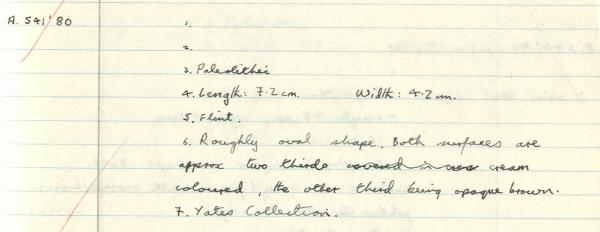 A. 541'80 1.
2.
3. Paleolithic
4. Length: 7.2 cm. Width: 4.2 cm.
5. Flint.
6. Roughly oval shape. Both surfaces are
approx two thirds covered in crea cream
coloured, the other third being opaque brown.
7. Yates Collection.